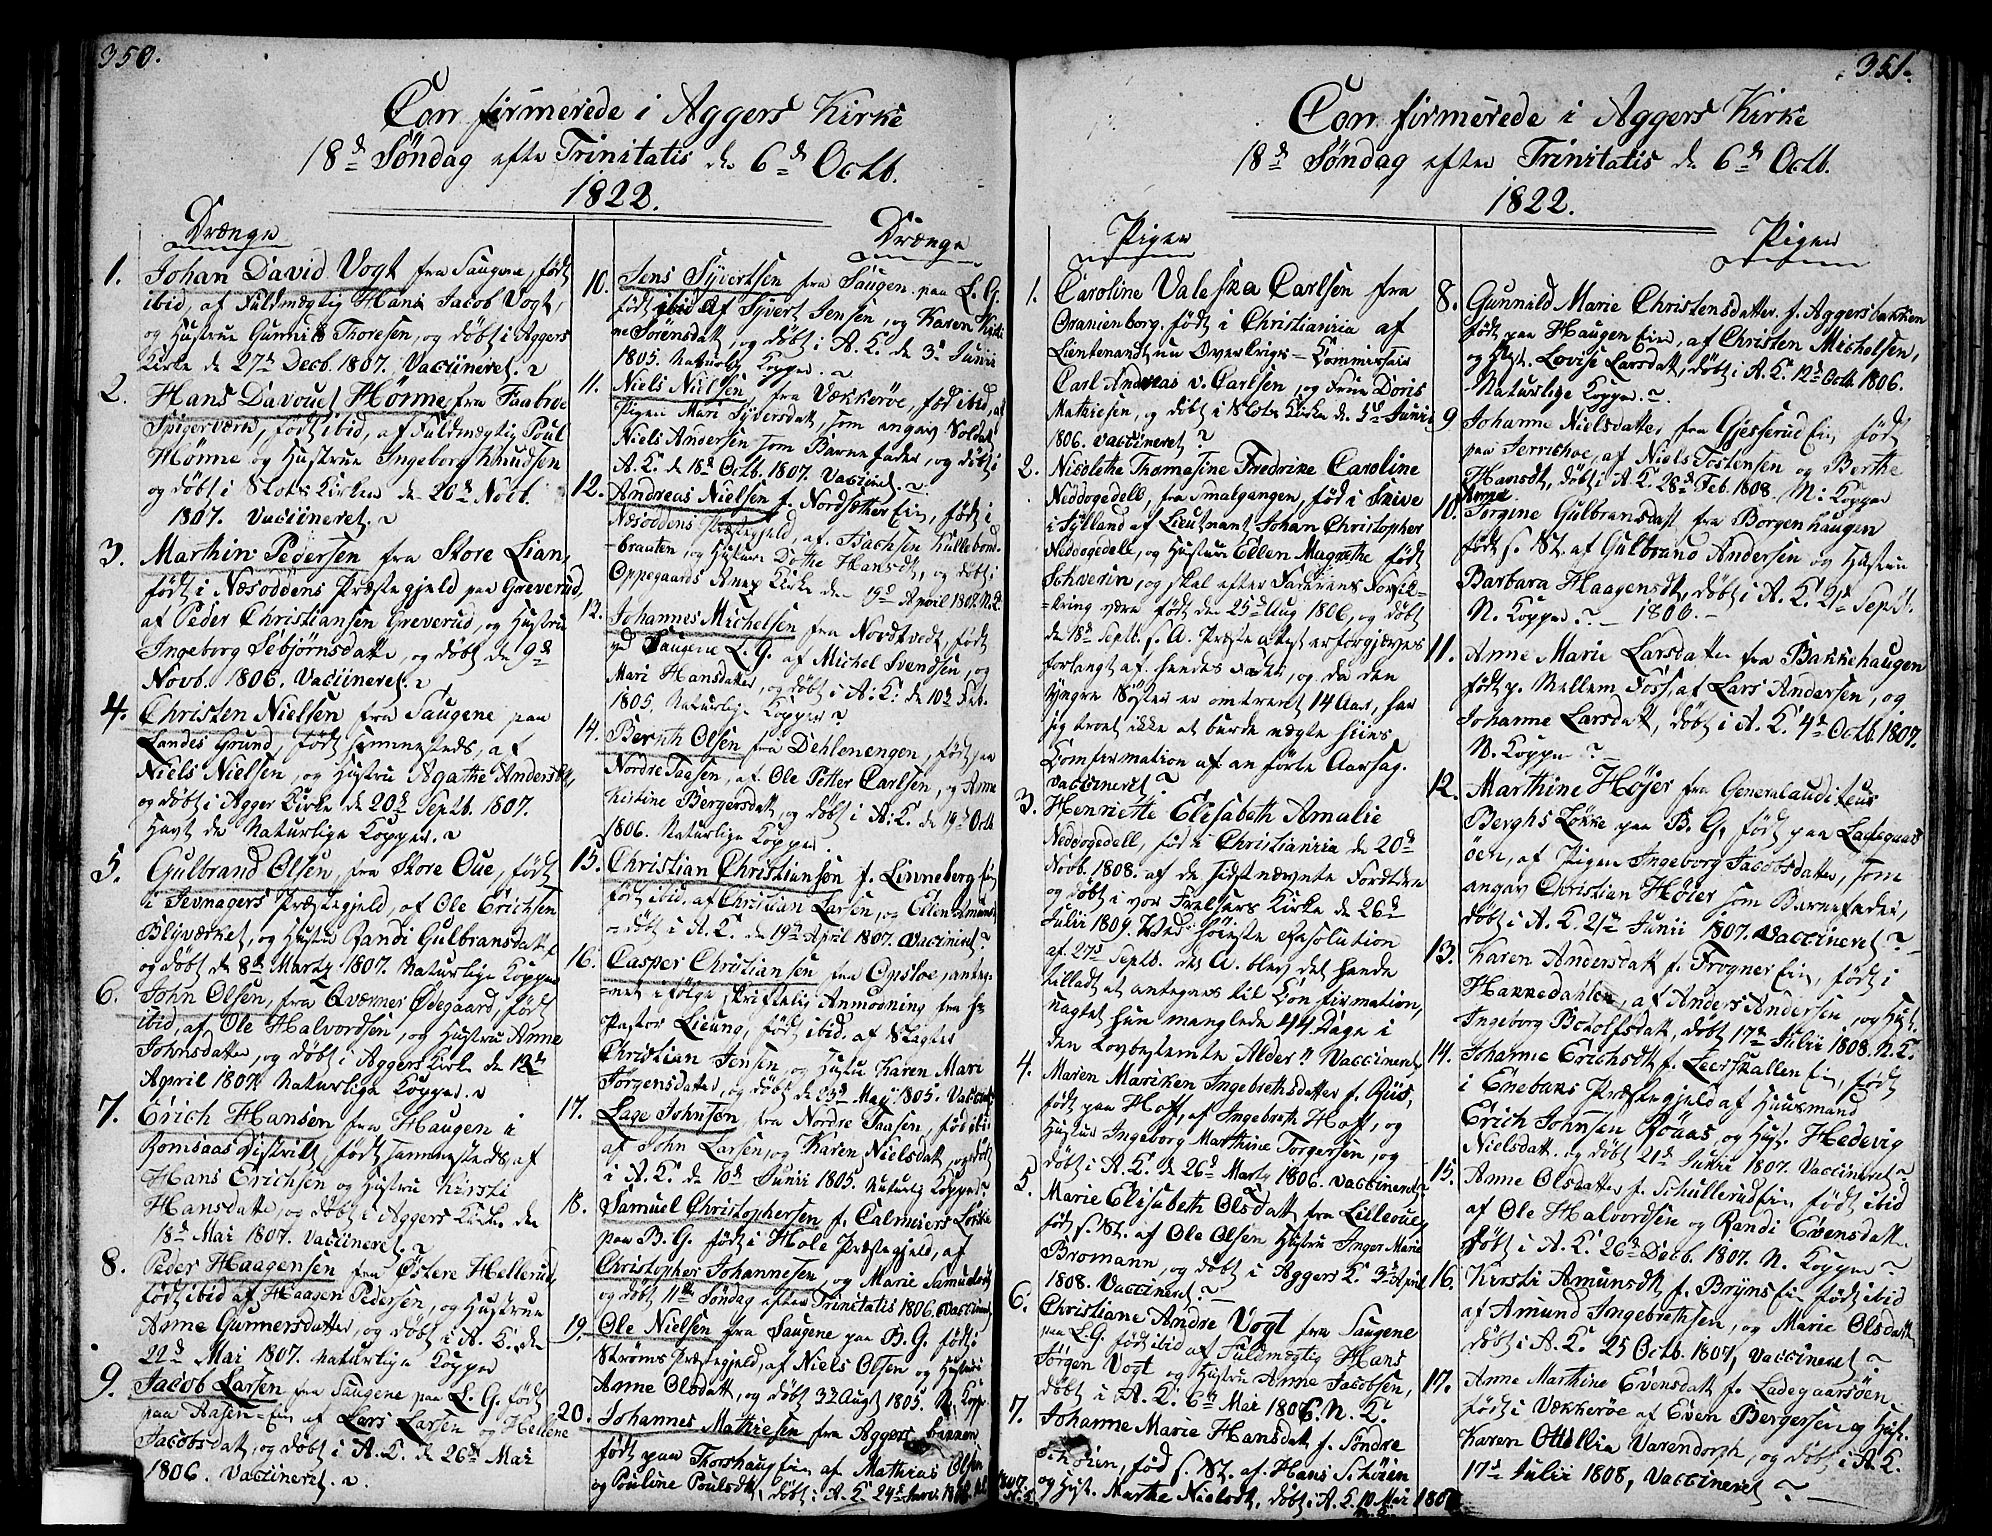 350.
Confirmerede i Aggers Kirke
18de Søndag efter Trinitatis de 6de Octb.
1822.
Drænge
1. Johan David Vogt fra Saugene, født
ibid, af Fuldmægtig Hans Jacob Vogt,
og Hustrue Gunnild Thoresen, og døbt i Aggers
Kirke de 27de Decb. 1807. Vaccineret.
2. Hans Davouet Mønne fra Faabroe
Spigerværk, født ibid, af Fuldmægtig Poul
Mønne og Hustrue Ingeborg Knudsen
og døbt i Slots Kirken de 20de Novb.
1807. Vaccineret.
3. Marthin Pedersen fra Store Lian,
født i Næsoddens Præstegjeld paa Greverud,
af Peder Christiansen Greverud, og Hustrue
Ingeborg Sebjørnsdatter, og døbt de 9de
Novb. 1806. Vaccineret.
4. Christen Nielsen fra Saugene paa
Landes Grund, født sammesteds, af
Niels Nielsen, og Hustru Agathe Andersdt,
og døbt i Agger Kirke de 20de Septb. 1807.
Havt de Naturlige Kopper.
5. Gulbrand Olsen, fra Store Oue, født
i Jevnagers Præstegjeld, af Ole Erichsen
Blyværket, og Hustrue Randi Gulbransdatt,
og døbt de 8de Martz 1807. Naturlige Kopper
6. John Olsen, fra Qværner Ødegaard, født
ibid, af Ole Halvordsen, og Hustru Anne
Johnsdatter, og døbt i Aggers Kirke de 12te
April 1807. Naturlige Kopper.
7. Erich Hansen fra Haugen i
Romsaas Distrikt, født sammesteds, af
Hans Erichsen og Hustru Kirsti
Hansdatter, og døbt i Aggers Kirke den
18de Mai 1807. Vaccineret.
8. Peder Haagensen fra Østere Hellerud,
født ibid af Haagen Pedersen, og Hustrue
Anne Gunnersdatter, og døbt i A. K. de
22de Mai 1807. Naturlige Kopper
9. Jacob Larsen fra Saugene paa L. G. født
paa Aasen-Ein af Lars Larsen og Hellene
Jacobsdatt, og døbt i A. K. de 26de Mai
1806. Vaccineret.
Drænge
10. Jens Syvertsen fra Saugen paa L. G.
født ibid af Syvert Jensen, og Karen Kirsti-
ne Sørensdatt, og døbt i A. K. de 3de Junii
1805. Naturlig Kopper.
11. Niels Nielsen fra Vækkerøe, fød ibid, af
Pigen Mari Syversdatt, som angav Soldat
Niels Andersen som Barnefader, og døbt i
A. K. de 18de Octb. 1807. Vaccinet.
12. Andreas Nielsen f. Nordsether Ein, født i
Næsoddens Præstegjeld, af
-braaten, og Hustrue Dotte Hansdt, og døbt i
Oppegaards Anex Kirke den 19de April 1807. N. K.
13. Johannes Michelsen fra Nordtvedt, født
ved Saugene L. G. af Michel Svendsen, og
Mari Hansdatter, og døbt i A. K. de 10de Feb.
1805. Naturlige Kopper
14. Bernth Olsen fra Dehlenengen, født paa
Nordre Taasen, af Ole Petter Carlsen, og Anne
Kirstine Bergersdatt, og døbt i A. K. de 19de Octb.
1806. Naturlige Kopper.
15. Christian Christiansen f. Linneberg Ein
født ibid, af Christian Larsen, og Ellen
døbt i A. K. de 19de April 1807. Vaccineret
16. Casper Christiansen fra Opsloe, anteg-
-net ifølge skriftelig Anmodning fra Hr
Pastor Lieung, født ibid. af Slagter
Christian Jensen, og Hustru Karen Mari
Jørgensdatter, og døbt de 23de Maij 1805. Vaccineret
17. Lage Johnsen, fra Nordre Taasen, fød ibid
af John Larsen, og Karen Nielsdatt, og døbt
i A. K. de 10de Junii 1805. Naturlig Kopper
18. Samuel Christophersen f. Calmeiers Løkke
paa B. G. født i Hole Præstegjeld, af
Christopher Johannesen, og Marie Samuelsdt
og døbt 11te Søndag efter Trinitatis 1806. Vaccineret
19. Ole Nielsen fra Saugene paa B. G. født i
Strøms Præstegjeld, af Niels Olsen og Hustrue
Anne Olsdatt, og døbt 3de Augst 1805. N. Kopp
20. Johannes Mathiesen fra Aggersbakken
født paa Thorshaug Ein af Mathias Olsen
og Pouline Poulsdt, døbt i A. K. 24de
351.
Confirmerede i Aggers Kirke
18de Søndag efter Trinitatis de 6de Octb.
1822.
Piger
1. Caroline Valeska Carlsen fra
Oranienborg, født i Christiania af
Lieutenant nu Overkrigs-Commissair
Carl Andreas v. Carlsen, og Frue Doris
Mathiesen, og døbt i Slots Kirke de 5te Junii
1806. Vaccineret
2. Nicolethe Thomasine Fredrike Caroline
Neddegedell, fra Smalgangen, fød i Skive
i Jylland af Lieutnant Johan Christopher
Neddegedell, og Hustrue Ellen Magrethe født
Schverin, og skal efter Faderens Forsik-
-kring være født den 25de Aug 1806, og døbt
de 18de Septb. s. A. Præste attest er forgjæves
forlangt af hendes Fader, og da den
yngre Søster er omtrent 14 Aar, har
jeg troet ikke at burde nægte hiins
Confirmation af an førte Aarsag.
Vaccineret
3. Henriette Elisabeth Amalie
Neddegedell, fød i Christiania de 20de
Novb. 1808. af de sidstnævnte Forældre
og døbt i vor Frelsers Kirke de 26de
Julii 1809. Ved høieste Resolution
af 27de Septb. des A. blev det hende
tilladt at antegnes til Confirmation,
uagtet hun manglede 44 Dage i
den Lovbestemte Alder" Vaccineret
4. Maren Mariken Ingebrethsdatter f. Riis,
født paa Hoff, af Ingebreth Hoff, og
Hustrue Ingeborg Marthine Torgersen, og
døbt i A. K. de 26de Martz 1806. Vaccineret
5. Marie Elisabeth Olsdatt fra Lilleoue,
født s. St. af Ole Olsen Hustru Inger Marie
Bromann, og døbt i Aggers K. 3de April
1808. Vaccinert
6. Christiane Andre Vogt fra Saugene
paa L. G. født ibid af Fuldmægtig Hans
Jørgen Vogt og Hustrue Anne Jacobsen,
døbt i A. K. 6te Mai 1806. N. K.
7. Johanne Marie Hansdatt f. Søndre
Schøien, fød s. St. af Hans Schøien
og Hust. Marthe Nielsdt, døbt i A. K. 10 Mai 180
Piger
8. Gunnild Marie Christensdatter f. Aggersbakken
født paa Haugen Ein, af Christen Michelsen,
og Hust. Lovise Larsdatt, døbt i A. K. 12te Octb. 1806.
Naturlige Kopper.
9. Johanne Nielsdatter, fra Gjesserud Ein født
paa af Niels Tostensen og Berthe
Hansdt, døbt i A. K. 28de Feb. 1808. N. Kopper
10. Anne
Jørgine Gulbransdatt fra Borgenhaugen
født s. St. af Gulbrand Andersen og Hustrue
Barbara Haagensdt, døbt i A. K. 21de Septb.
N. Kopper - 1806.-
11. Anne Marie Larsdatter fra Bakkehaugen
født p. Mellem Foss, af Lars Andersen, og
Johanne Larsdatt, døbt i A. K. 4de Octb. 1807.
N. Kopper
12. Marthine Høyer fra Generalauditeur
Berghs Løkke paa B. G., født paa Ladegaards
øen, af Pigen Ingeborg Jacobsdatter, som
angav Christian Høier som Barnefader,
døbt i A. K. 21de Junii 1807. Vaccineret
13. Karen Andersdatt f. Frogner Ein, født i
Hakkedahlen, af Anders Andersen, og Hust.
Ingeborg Botolfsdatt, døbt 17de Julii 1808. N. K.
14. Johanne Erichsdt f. Leerskallen Ein, født
i Enebaks Præstegjeld af Huusmand
Erich Johnsen Røaas, og Hust. Hedevig
Nielsdatt. og døbt 21de Junii 1807. Vaccineret
15. Anne Olsdatter f. Schullerud Ein født ibid
af Ole Halvordsen og Randi Evensdatt.
døbt i A. K. 26de Decb. 1807. N. Kopper
16. Kirsti Amunsdt f. Bryns Ein født ibid
af Amund Ingebrethsen, og Marie Olsdatt
døbt i A. K. 25 Octb. 1807, Vaccineret
17. Anne Marthine Evensdatt f. Ladegaarsøen
født i Vækkerøe af Even Bergersen og Hust.
Karen Ottillia Varendorph, og døbt i A. K.
17de Julii 1808, Vaccineret